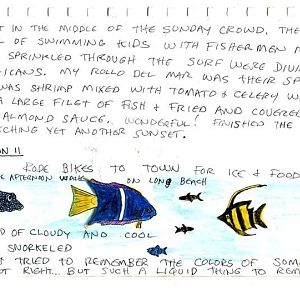 T IN THE MIDDLE OF THE SUNDAY CROWD, THE
L OF SWIMMING KIDS WITH FISHERMEN
SPRINKLED THROUGH THE SURF WERE DIVI
ICANS. MY ROLLO DEL MAR WAS THEIR SP
WAS SHRIMP MIXED WITH TOMATO & CELERY W
A LARGE FILET OF FISH & FRIED AND COVERED
ALMOND SAUCE. WONDERFUL! FINISHED THE
CHING YET ANOTHER SUNSET.
N 11
RODE BIKES TO TOWN FOR ICE & FOOD
E AFTERNOON WALK ON LONG BEACH
D OF CLOUDY AND COOL
SNORKELED
T TRIED TO REMEMBER THE COLORS OF SOM
OT RIGHT... BUT SUCH A LIQUID THING TO REM